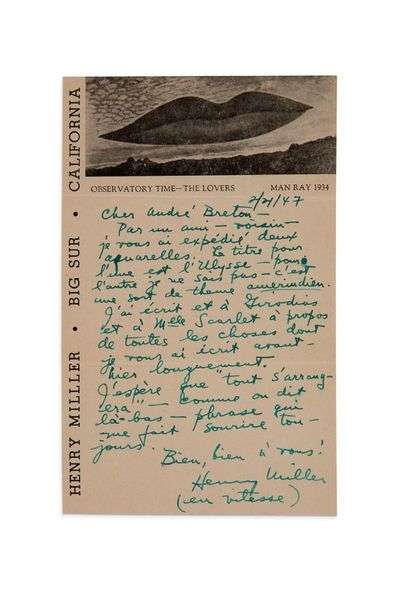 HENRY MILLLER • BIG SUR • CALIFORNIA
OBSERVATORY TIME—THE LOVERS MAN RAY 1934
2/21/47
Cher André Breton —
Par un ami — voisin —
je vous ai expédié deux
aquarelles. Le titre pour
l'une est l'Ulysse — pour
l'autre je ne sais pas — c'est
une sort de theme amerindien.
J'ai écrit et à Girodias
et à Mlle Scarlet à propos
de toutes les choses dont
je vous ai écrit avant-
hier longuement.
J'espère que "tout s'arrang-
era" — comme on dit
là-bas — phrase qui
me fait sourire tou-
jours.
Bien, bien à vous!
Henry Miller
(en vitesse)